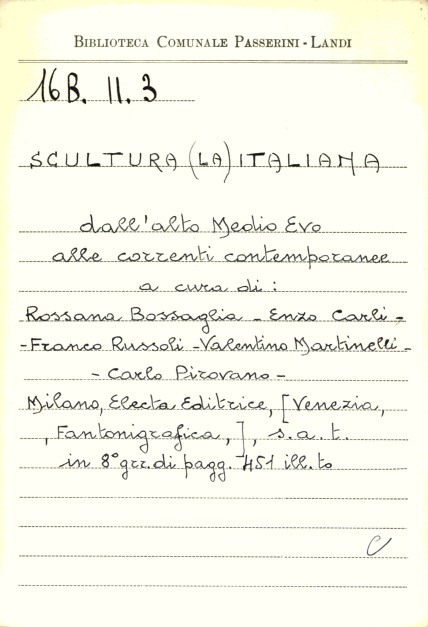 BIBLIOTECA COMUNALE PASSERINI - LANDI
16B. II. 3
SCULTURA (LA) ITALIANA
dall'alto Medio Evo
alle correnti contemporanee
a cura di :
Rossana Bossaglia - Enzo Carli -
- Franco Russoli - Valentino Martinelli -
- Carlo Pirovano -
Milano, Electa Editrice, [Venezia,
, Fantonigrafica, ], s.a.t.
in 8° gr. di pagg. 451 ill.to
C